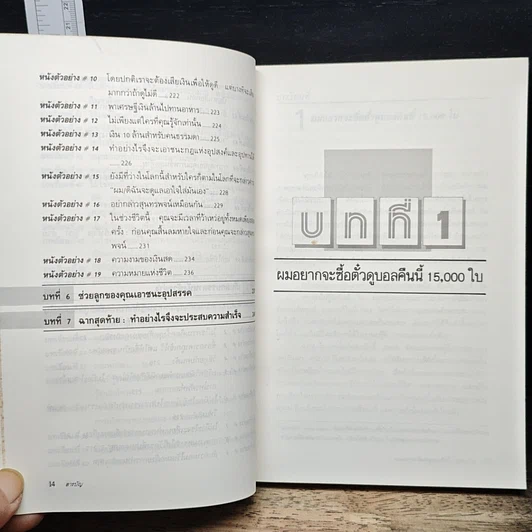 หนังตัวอย่าง # 10 โดยปกติเราจะต้องเสียเงินเพื่อให้ดูดี
มากกว่าถ้าดูไม่ดี.....222
หนังตัวอย่าง # 11 พาเศรษฐีเงินล้านไปทานอาหาร.....223
หนังตัวอย่าง # 12 ไม่เพียงแต่ใครที่คุณรู้จักเท่านั้น.....
หนังตัวอย่าง # 13 เงิน 10 ล้านสำหรับคนธรรมดา.....225
หนังตัวอย่าง # 14 ทำอย่างไรจึงจะเอาชนะกฎแห่งอุปสงค์และอุปทานได้
226
หนังตัวอย่าง # 15 ยังมีที่ว่างในโลกนี้สำหรับใครก็ตามในโลกที่จะกล่าวว่า
"ผม/ดิฉันจะดูแลเอาใจใส่มันเอง".....228
หนังตัวอย่าง # 16 อย่ากล่าวสุนทรพจน์เหมือนกัน.....229
หนังตัวอย่าง # 17 ในช่วงชีวิตนี้ คุณจะมีเวลาที่ว้าเหว่อยู่ทั้งหมดเพียงสอง
ครั้ง ก่อนคุณสิ้นลมหายใจและก่อนคุณจะกล่าวสุนทร
พจน์.....231
หนังตัวอย่าง # 18 ความงามของเงินสด.....
หนังตัวอย่าง # 19 ความหมายแห่งชีวิต.....236
บทที่ 6 ช่วยลูกของคุณเอาชนะอุปสรรค
บทที่ 7 ฉากสุดท้าย : ทำอย่างไรจึงจะประสบความสำเร็จ
14 สารบัญ
บทที่ 1
ผมอยากจะซื้อตั๋วดูบอลคืนนี้ 15,000 ใบ